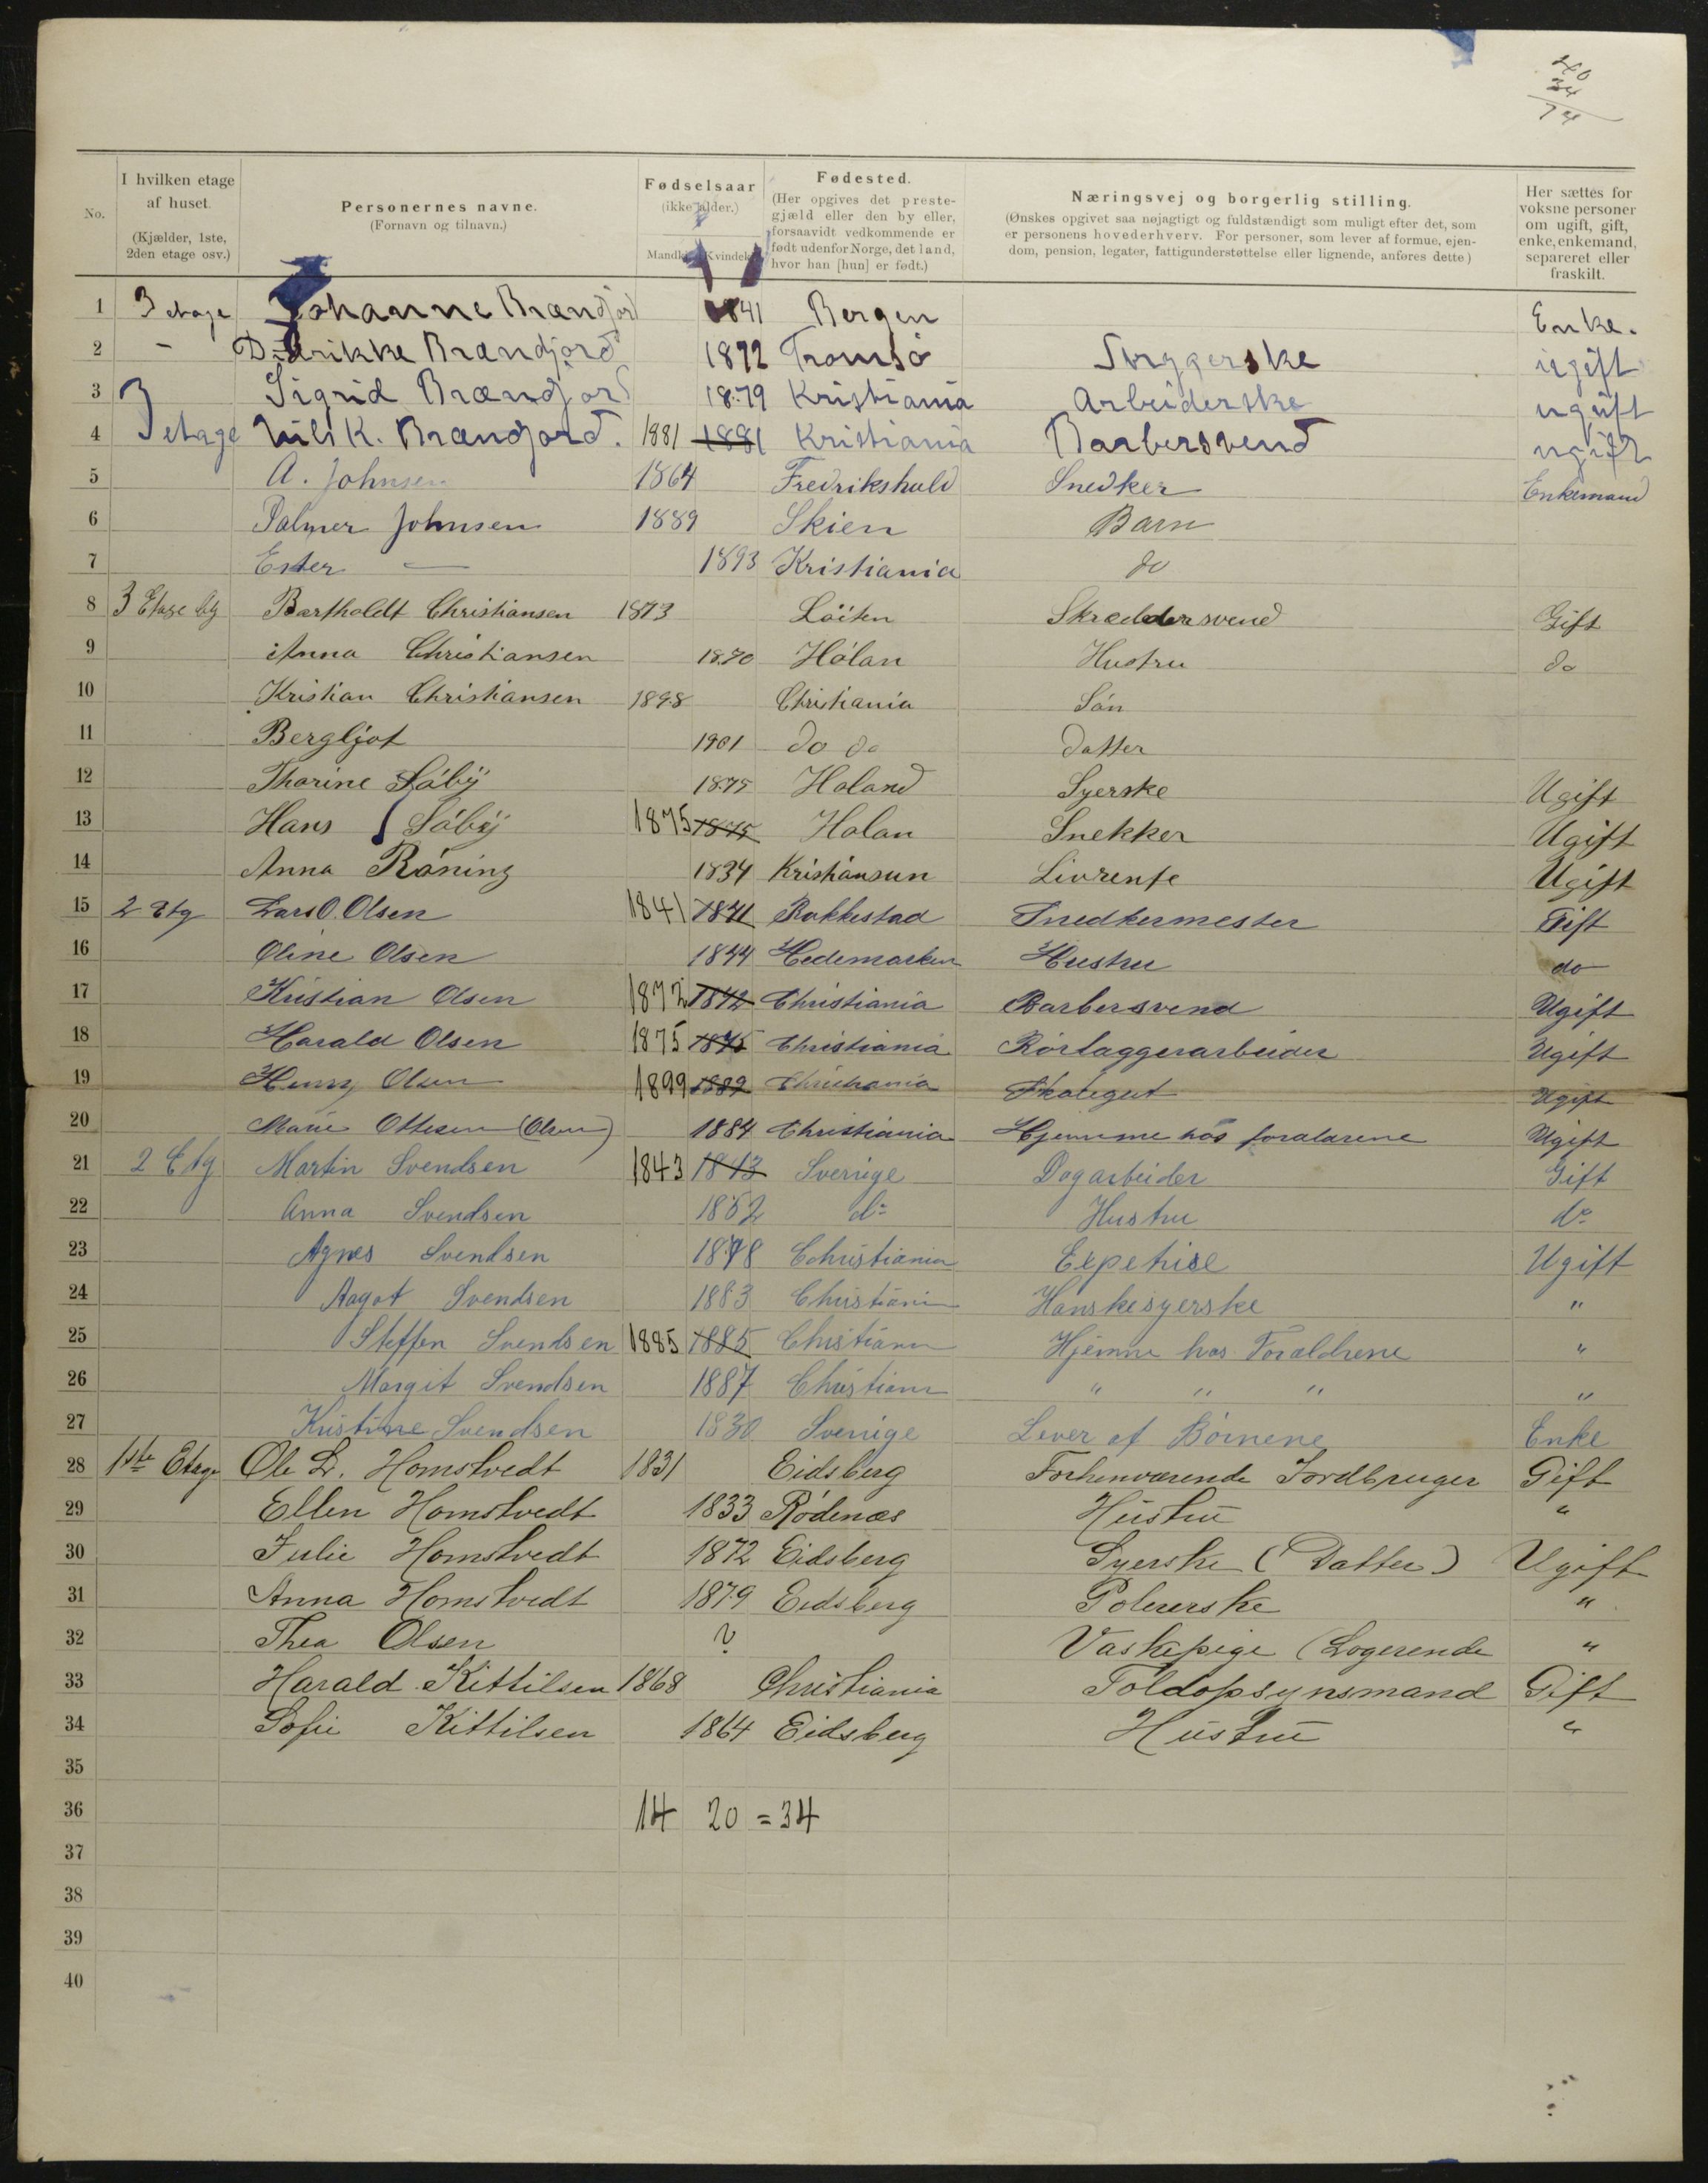 40
34
74
No. I hvilken etage af huset. (Kjælder, 1ste, 2den etage osv.) Personernes navne. (Fornavn og tilnavn.) Fødselsaar (ikke alder.) Mandk. Kvindek. Fødested. (Her opgives det prestegjæld eller den by eller, forsaavidt vedkommende er født udenfor Norge, det land, hvor han [hun] er født.) Næringsvej og borgerlig stilling. (Ønskes opgivet saa nøjagtigt og fuldstændigt som muligt efter det, som er personens hovederhverv. For personer, som lever af formue, ejendom, pension, legater, fattigunderstøttelse eller lignende, anføres dette) Her sættes for voksne personer om ugift, gift, enke, enkemand, separeret eller fraskilt.
1 3 etage Johanne Brændjord 1841 Bergen Enke.
2 - Didrikke Brændjord 1872 Tromsø Strygerske ugift
3 3 Sigrid Brændjord 1879 Kristiania Arbeiderske ugift
4 etage Nils K. Brændjord. 1881 1881 Kristiania Barbersvend ugift
5 A. Johnsen 1864 Fredrikshald Snedker Enkemand
6 Palmer Johnsen 1889 Skien Barn
7 Ester — 1893 Kristiania do
8 3 Etage Bartholdt Christiansen 1873 Löiten Skræddersvend Gift
9 Anna Christiansen 1870 Hölan Hustru do
10 Kristian Christiansen 1898 Christiania Sön
11 Bergljot 1901 do do Datter
12 Thorine Söby 1875 Holand Syerske Ugift
13 Hans Söby 1875 1875 Holan Snekker Ugift
14 Anna Röning 1834 Kristiansun Livrente Ugift
15 2 Etg Lars O. Olsen 1841 1841 Rakkestad Snedkermester Gift
16 Oline Olsen 1844 Hedemarken Hustru do
17 Kristian Olsen 1872 1872 Christiania Barbersvend Ugift
18 Harald Olsen 1875 1875 Christiania Rörlaggerarbeider Ugift
19 Henry Olsen 1899 1889 Christiania Skolegut Ugift
20 Marie Ottesen (Olsen) 1884 Christiania Hjemme hos foraldrene Ugift
21 2 Etg Martin Svendsen 1843 1843 Sverrige Dagarbeider Gift
22 Anna Svendsen 1852 do Hustru do
23 Agnes Svendsen 1878 Cchristiania Expetrise Ugift
24 Aagot Svendsen 1883 Christiani Hanskesyerske "
25 Steffen Svendsen 1885 1885 Christiani Hjemme hos Forældrene "
26 Margit Svendsen 1887 Christiani " " " "
27 Kristine Svendsen 1830 Sverrige Lever af Börnene Enke
28 1ste Etage Ole L. Homstvedt 1831 Eidsberg Forhenværende Jordbruger Gift
29 Ellen Homstvedt 1833 Rödenæs Hustru "
30 Julie Homstvedt 1872 Eidsberg Syerske (Datter) Ugift
31 Anna Homstvedt 1879 Eidsberg Polererske "
32 Thea Olsen ? Vaskepige (Logerende "
33 Harald Kittilsen 1868 Christiania Toldopsynsmand Gift
34 Sofie Kittilsen 1864 Eidsberg Hustru "
35
36 14 20 = 34
37
38
39
40